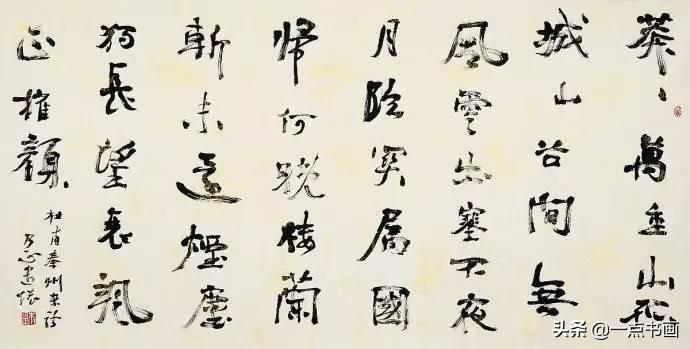 莽〻萬重山孤
城山谷間無
風雲出塞不夜
月臨関属國
帰何晚楼蘭
斬未還煙塵
独長望衰颯
正摧顔
杜甫秦州杂诗
头条 @一点书画